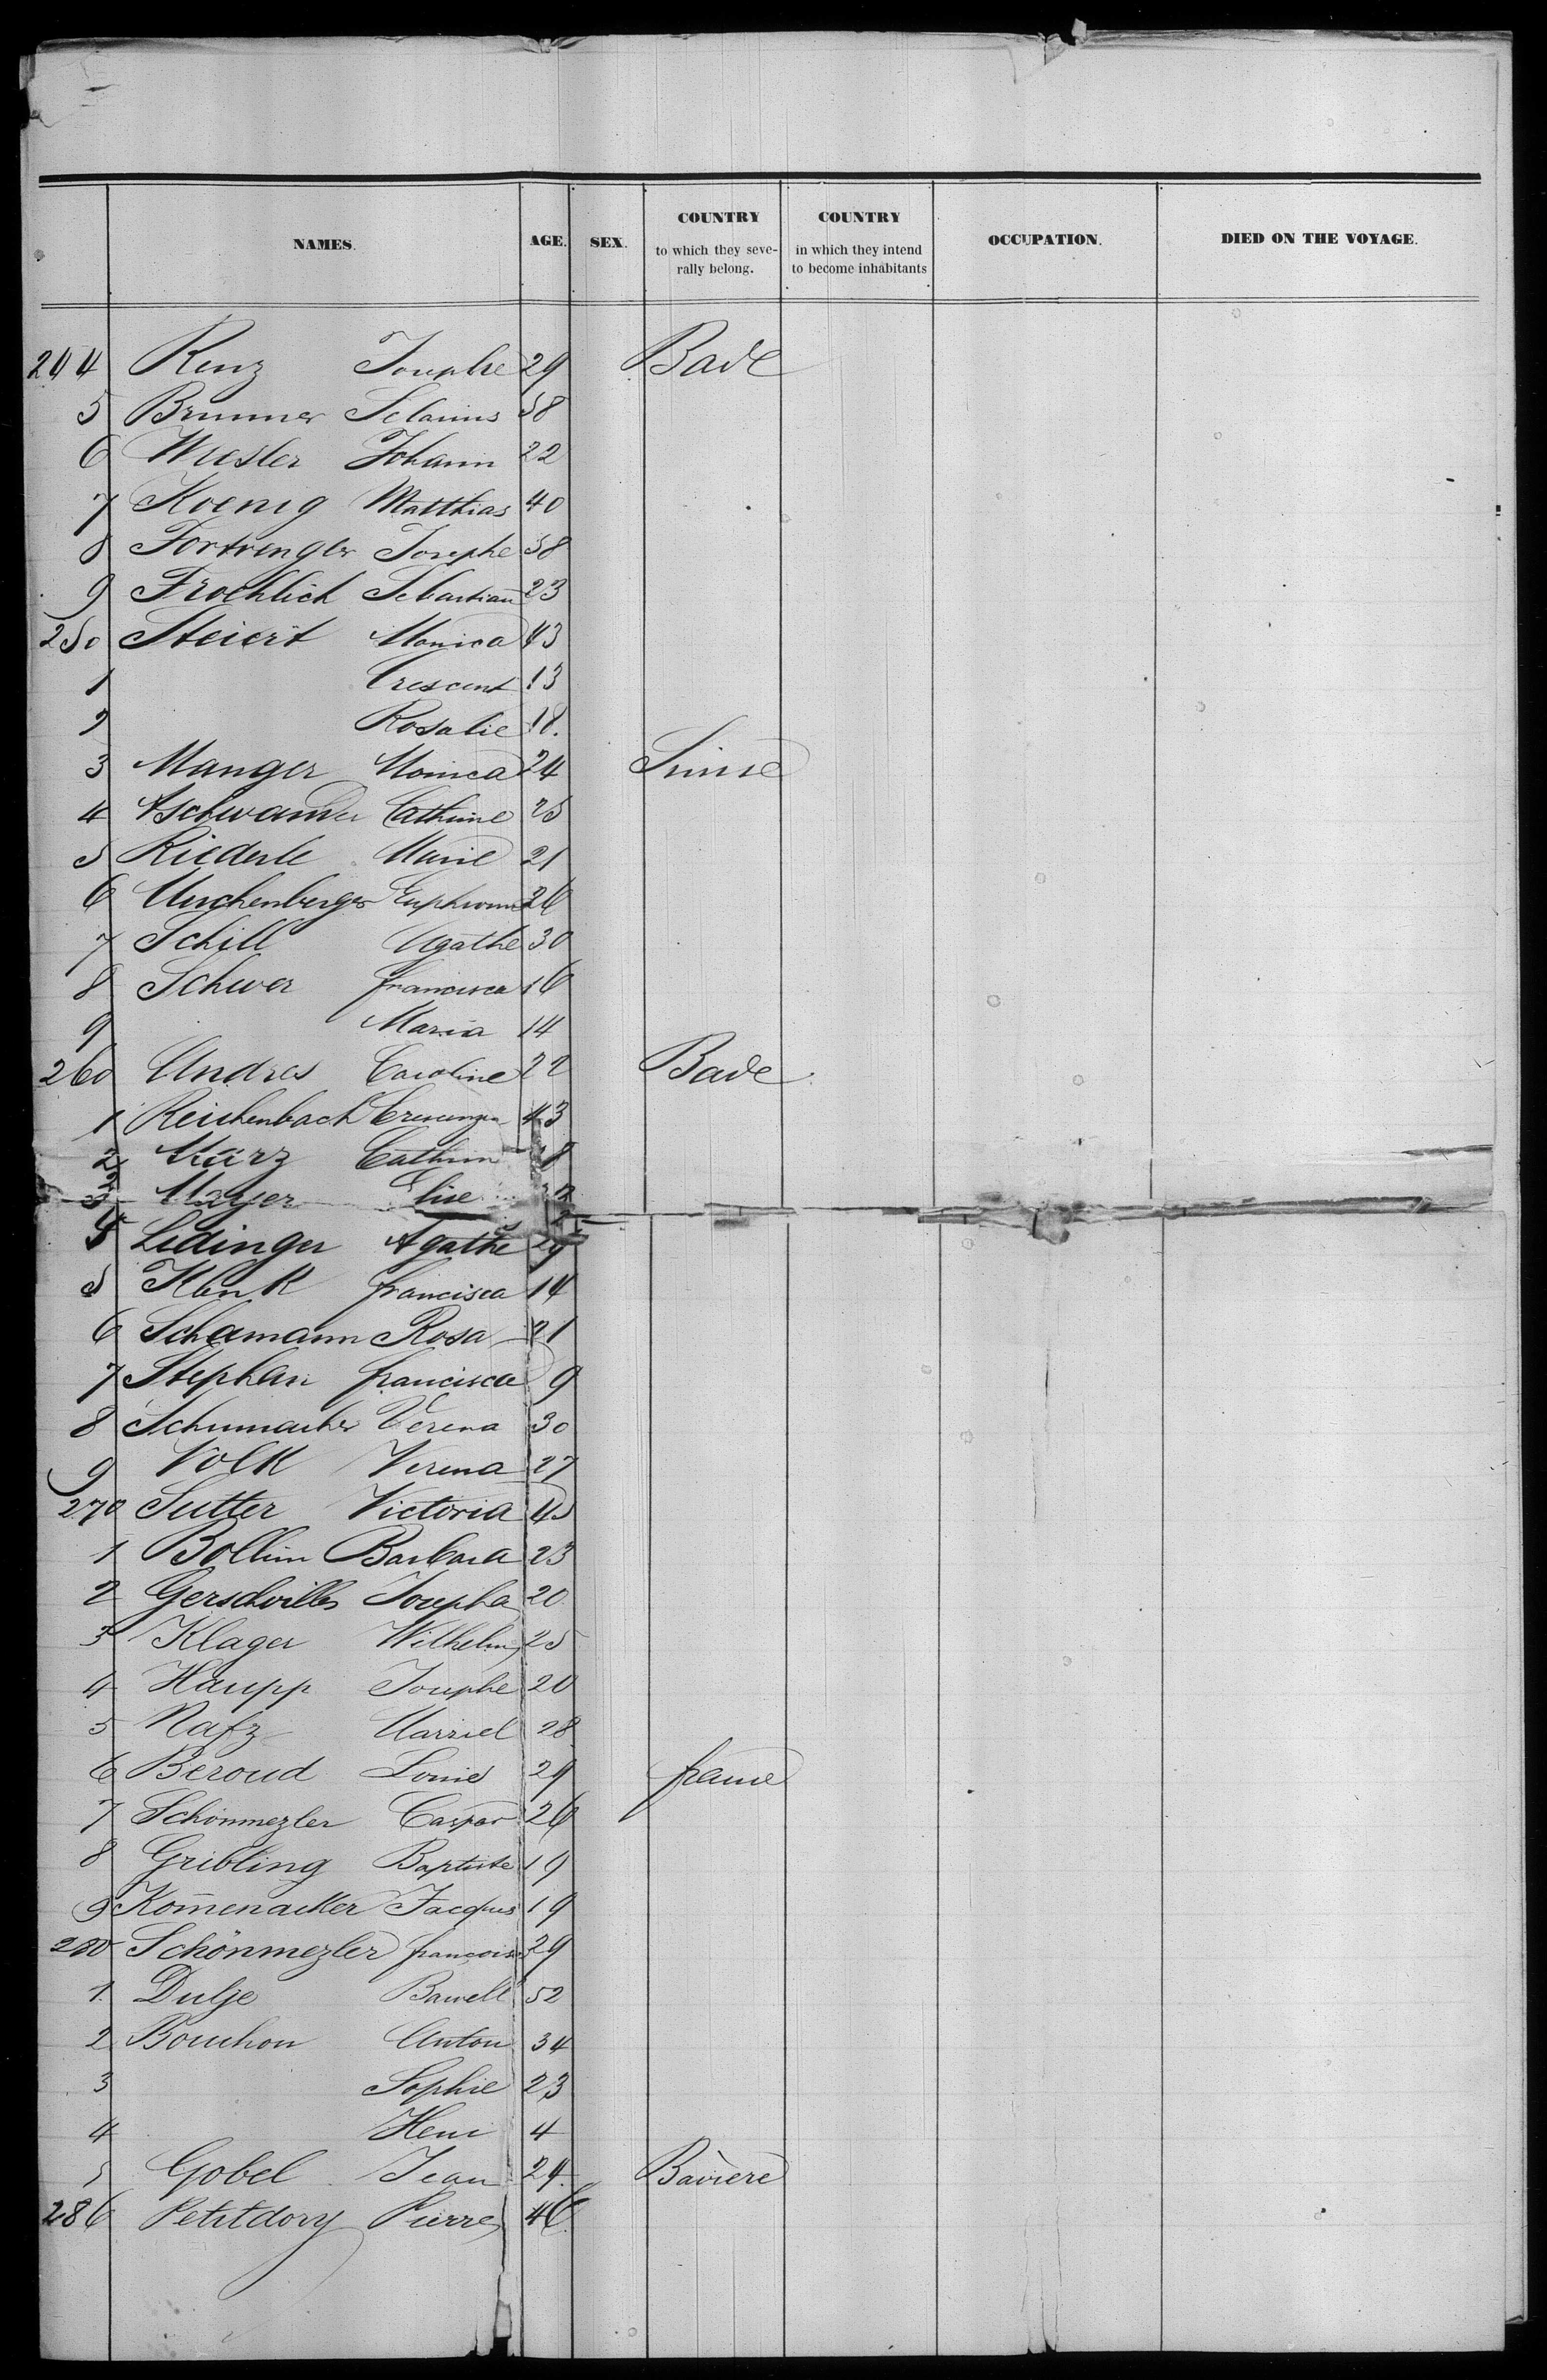 NAMES. AGE. SEX. COUNTRY to which they seve- rally belong. COUNTRY in which they intend to become inhabitants OCCUPATION. DIED ON THE VOYAGE.
244 Renz Josephe 29 Bade
5 Brunner 58
6 Wiesler Johann 22
7 Koenig Matthias 40
8 Fortwengler Josephe 38
9 Froehlich Sebastian 23
250 Steiert Monica 43
1 Crescent 13
2 Rosalie 18.
3 Manger Monica 24 Suisse
4 Aschwanden Cathrine 25
5 Riederle Marie 21
6 26
7 Schill Agathe 30
8 Schwer francisca 16
9 Maria 14
260 Andres Caroline 22 Bade
1 Reichenbach 43
2 März Cathrin
3 Mayer Elise
4 Ledinger Agathe 29
5 Klenk francisca 14
6 Schamann Rosa 21
7 Stephan francisca 9
8 Schumacher Verena 30
9 Volk Verena 27
270 Sutter Victoria 45
1 Bollim Barbara 23
2 Josepha 20
3 Klager Wilhelm 25
4 Haupp Josephe 20
5 Nafz 28
6 Beroud Louis 29 france
7 Schönmezler Caspar 26
8 Gribling Baptiste 19
9 Kom̄enacker Jacques 19
280 Schönmezler francoise 29
1 52
2 Bouchon Anton 34
3 Sophie 23
4 Henri 4
5 Gobel Jean 24. Baviere
286 Petitdory Pierre 46